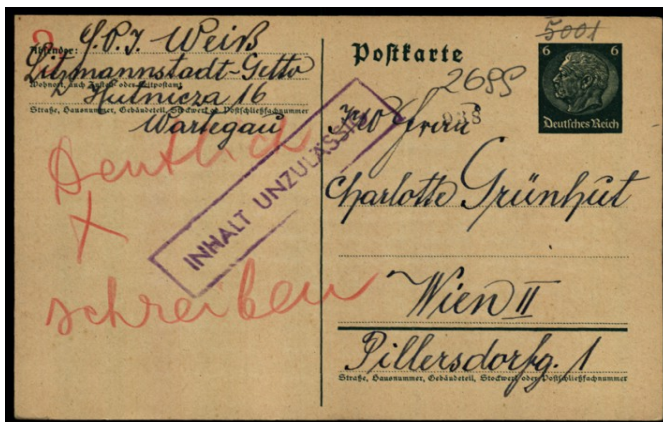 Absender: S.P.J. Weiß
Litzmannstadt-Getto
Wohnort, auch Zustell- oder Leitpostamt
Hutnicza 16
Straße, Hausnummer, Gebäudeteil, Stockwerk od. Postschließfachnummer
Wartegau
Deutlich
schreiben
INHALT UNZULÄSSIG
Postkarte
5001
6 6
Deutsches Reich
2699
938
Frau
Charlotte Grünhut
Wien II
Pillersdorfg. 1
Straße, Hausnummer, Gebäudeteil, Stockwerk oder Postschließfachnummer